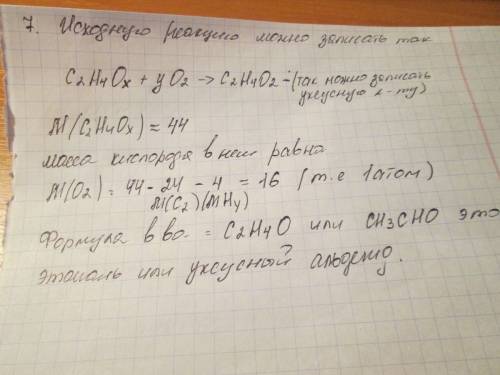 7. Исходную реакцию можно записать так
C2H4Ox + yO2 → C2H4O2 - (так можно записать
уксусную к-ту)
M(C2H4Ox) = 44
масса кислорода в нем равна
M(O2) = 44 - 24 - 4 = 16 (т.е 1 атом)
M(C2) (MH4)
Формула в во- = C2H4O или CH3CHO это
этаналь или уксусный альдегид.